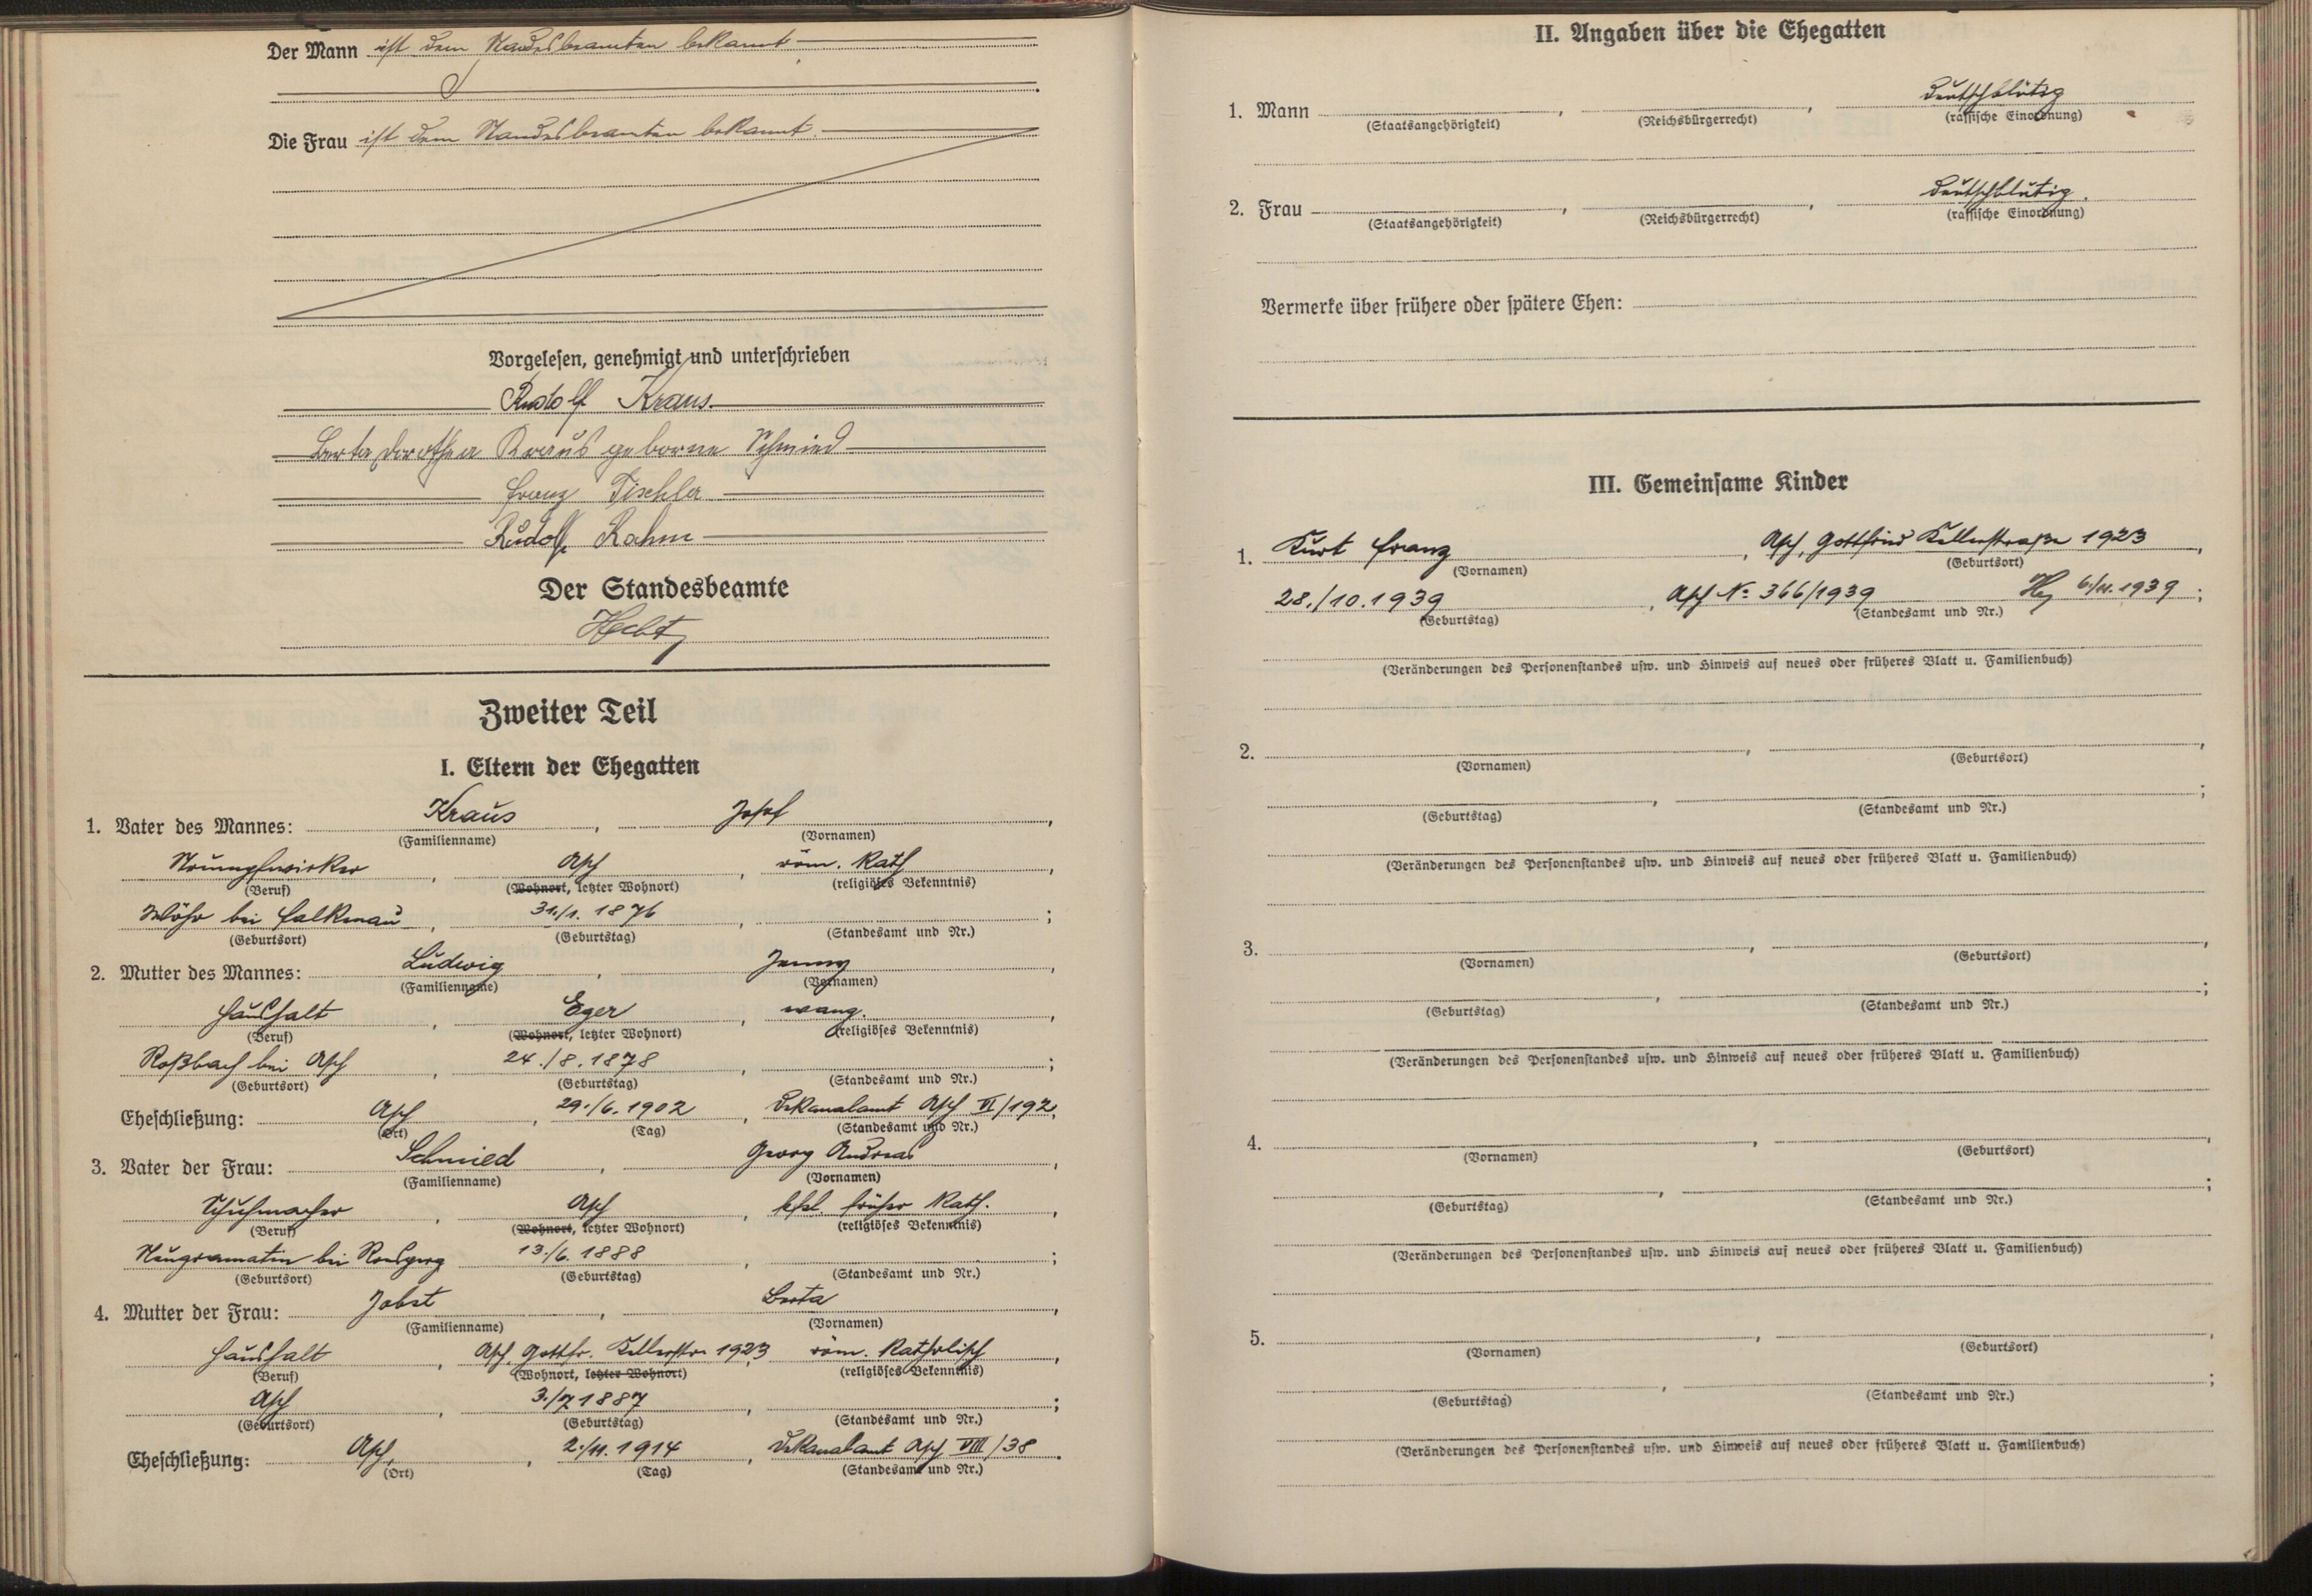 Der Mann ist dem Standesbeamten bekannt
Die Frau ist dem Standesbeamten bekannt.
Vorgelesen, genehmigt und unterschrieben
Rudolf Kraus.
Berta Dorothea Kraus geborne Schmied
Franz Tischler
Rudolf Rahm
Der Standesbeamte
Zweiter Teil
I. Eltern der Ehegatten
1. Vater des Mannes: Kraus, Josef,
(Familienname) (Vornamen)
Strumpfwirker, Asch, röm. Kath,
(Beruf) (Wohnort, letzter Wohnort) (religiöses Bekenntnis)
Wöhr bei Falkenau, 31./1. 1876, ;
(Geburtsort) (Geburtstag) (Standesamt und Nr.)
2. Mutter des Mannes: Ludwig, Jenny,
(Familienname) (Vornamen)
Haushalt, Eger, evang.,
(Beruf) (Wohnort, letzter Wohnort) (religiöses Bekenntnis)
Roßbach bei Asch, 24./8. 1878, ;
(Geburtsort) (Geburtstag) (Standesamt und Nr.)
Eheschließung: Asch, 29./6. 1902, Dekanalamt Asch VI/192.
(Ort) (Tag) (Standesamt und Nr.)
3. Vater der Frau: Schmied, Georg Andreas,
(Familienname) (Vornamen)
Schuhmacher, Asch, früher Kath.,
(Beruf) (Wohnort, letzter Wohnort) (religiöses Bekenntnis)
Neugramatin bei Ronsperg 13./6. 1888, ;
(Geburtsort) (Geburtstag) (Standesamt und Nr.)
4. Mutter der Frau: Jobst, Berta,
(Familienname) (Vornamen)
Haushalt, Asch, Gottfr. Kellerstr. 1923 röm. Katholisch,
(Beruf) (Wohnort, letzter Wohnort) (religiöses Bekenntnis)
Asch, 3./7 1887, ;
(Geburtsort) (Geburtstag) (Standesamt und Nr.)
Eheschließung: Asch, 2./11. 1914, Dekanalamt Asch VIII/38.
(Ort) (Tag) (Standesamt und Nr.)
II. Angaben über die Ehegatten
1. Mann , , deutschblütig
(Staatsangehörigkeit) (Reichsbürgerrecht) (rassische Einordnung)
2. Frau , , deutschblütig.
(Staatsangehörigkeit) (Reichsbürgerrecht) (rassische Einordnung)
Vermerke über frühere oder spätere Ehen:
III. Gemeinsame Kinder
1. Kurt Franz, Asch, Gottfried Kellerstraße 1923,
(Vornamen) (Geburtsort)
28./10.1939, Asch No 366/1939 6./11.1939;
(Geburtstag) (Standesamt und Nr.)
(Veränderungen des Personenstandes usw. und Hinweis auf neues oder früheres Blatt u. Familienbuch)
2. , ,
(Vornamen) (Geburtsort)
, ;
(Geburtstag) (Standesamt und Nr.)
(Veränderungen des Personenstandes usw. und Hinweis auf neues oder früheres Blatt u. Familienbuch)
3. , ,
(Vornamen) (Geburtsort)
, ;
(Geburtstag) (Standesamt und Nr.)
(Veränderungen des Personenstandes usw. und Hinweis auf neues oder früheres Blatt u. Familienbuch)
4. , ,
(Vornamen) (Geburtsort)
, ;
(Geburtstag) (Standesamt und Nr.)
(Veränderungen des Personenstandes usw. und Hinweis auf neues oder früheres Blatt u. Familienbuch)
5. , ,
(Vornamen) (Geburtsort)
, ;
(Geburtstag) (Standesamt und Nr.)
(Veränderungen des Personenstandes usw. und Hinweis auf neues oder früheres Blatt u. Familienbuch)